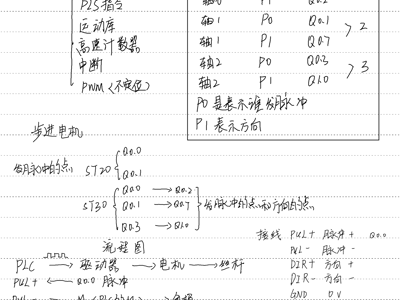 PLS指令
运动库
高速计数器
中断
PWM(不定位)
轴1 P0 Q0.1
轴1 P1 Q0.7 > 2
轴2 P0 Q0.3
轴2 P1 Q1.0 > 3
P0是表示谁发脉冲
P1表示方向
步进电机
发脉冲的点 ST20 Q0.0
Q0.1
ST30 Q0.0 → Q0.2
Q0.1 → Q0.7 发脉冲的点和方向的点
Q0.3 → Q1.0
流程图
PLC → 驱动器 → 电机 → 丝杆
PUL+ ← Q0.0 脉冲
接线 PUL+ 脉冲+ Q0.0
PUL- 脉冲-
DIR+ 方向+
DIR- 方向-
GND 0V